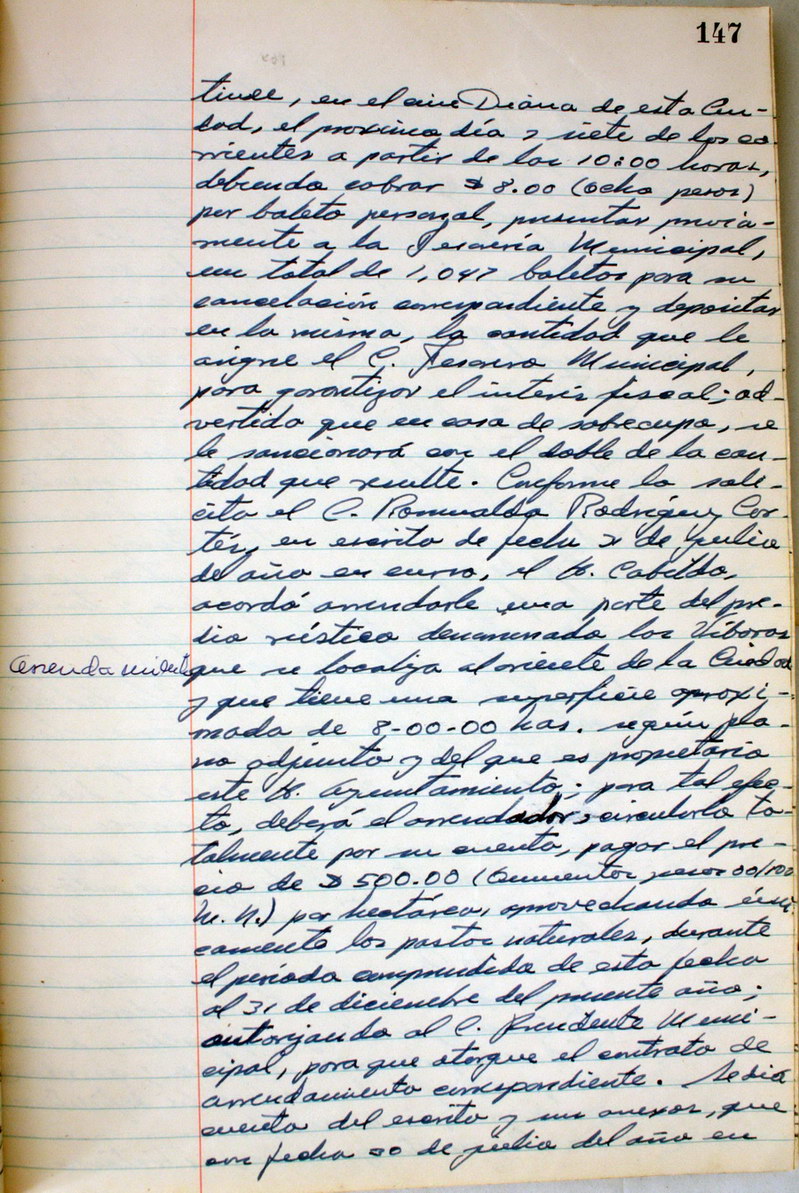 147
tinee, en el cine Diana de esta Ciu-
dad, el proximo día 7 siete de los co-
rrientes a partir de las 10:00 horas,
debiendo cobrar $ 8.00 (ocho pesos)
por boleto personal, presentar previa-
mente a la Tesorería Municipal,
un total de 1,047 boletos para su
cancelación correspondiente y depositar
en la misma, la cantidad que le
asigne el C. Tesorero Municipal,
para garantizar el interés fiscal; ad-
vertido que en caso de sobrecupo, se
le sancionará con el doble de la can-
tidad que resulte. Conforme lo soli-
cita el C. Romualdo Rodríguez Cor-
tés, en escrito de fecha de julio
del año en curso, el H. Cabildo,
acordó arrendarle una parte del pre-
dio rústico denominado los Víboras
Arrendamiento que se localiza al oriente de la Ciudad
y que tiene una superficie aproxi-
mada de 8-00-00 has. según pla-
no adjunto y del que es propietario
este H. Ayuntamiento; para tal efec-
to, deberá el arrendador, circularlo to-
talmente por su cuenta, pagar el pre-
cio de $ 500.00 (Quinientos pesos 00/100
M. N.) por hectárea, aprovechando úni-
camente los pastos naturales, durante
el período comprendido de esta fecha
al 31 de diciembre del presente año;
autorizando al C. Presidente Muni-
cipal, para que otorgue el contrato de
arrendamiento correspondiente. Se dió
cuenta del escrito y sus anexos, que
con fecha 30 de julio del año en